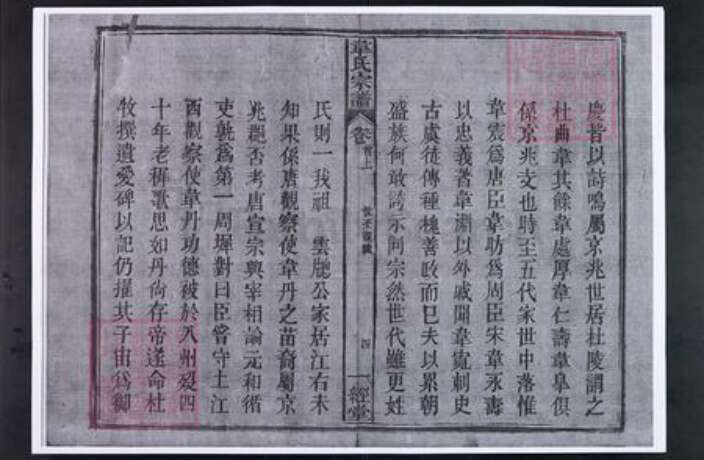 慶皆以詩鳴屬京兆世居杜陵謂之
杜曲韋其餘韋處厚韋仁壽韋皐俱
係京兆支也時至五代家世中落惟
韋震爲唐臣韋昉爲周臣宋韋永壽
以忠義著韋淵以外戚聞韋寬刺史
古虞徒傳種槐善政而已夫以累朝
盛族何敢誇示同宗然世代雖更姓
韋氏宗譜
卷 首上
四
一經堂
氏則一我祖 雲廳公家居江右未
知果係唐觀察使韋丹之苗裔屬京
兆郡否考唐宣宗與宰相論元和循
吏孰爲第一周墀對曰臣嘗守土江
西觀察使韋丹功德被於八州歿四
十年老稚歌思如丹尙存帝遂命杜
牧撰遺愛碑以記仍擢其子宙爲御